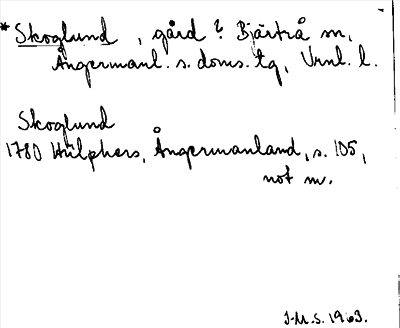 *Skoglund, gård? Bjärtrå sn,
Ångermanl. s. doms. tg, Vrnl. l.
Skoglund
1780 Hülphers, Ångermanland, s. 105,
not m.
J.M.S. 1963.